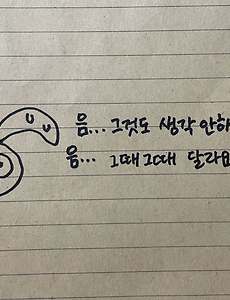 음... 그것도 생각 안해
음... 그때그때 달라요